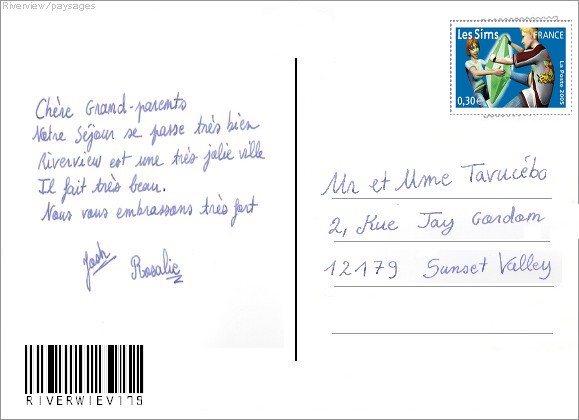 Riverview/paysages
Les Sims FRANCE
La Poste 2005
0,30 €
Chère Grand-parents
Notre Séjour se passe très bien
Riverview est une très jolie ville
Il fait très beau.
Nous vous embrassons très fort
Josh
Rosalie
Mr et Mme Tavucébo
2, Rue Jay Gordom
12179 Sunset Valley
RIVERWIEV175